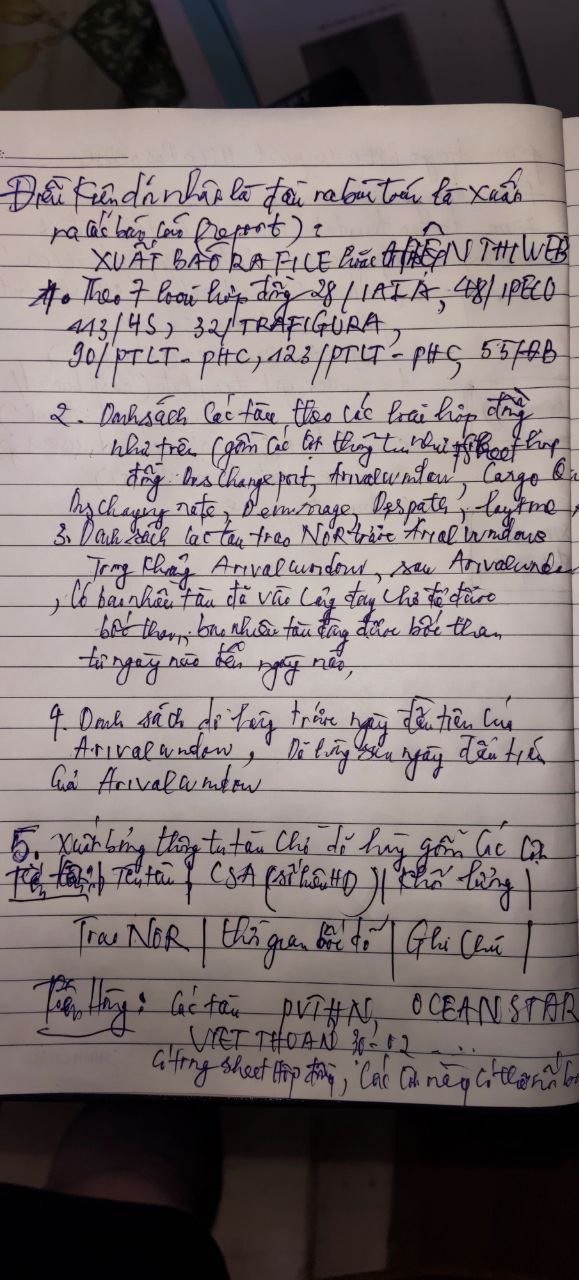 Điều kiện dữ nhập là đầu ra bài toán là xuất
ra các báo cáo (report) :
XUẤT BÁO RA FILE hoặc TRÊN THI WEB
1. Theo 7 loại hợp đồng 28/IAIA, 48/IPECO
413/4S, 32/TRAFIGURA,
90/PTLT-PHC, 123/PTLT-PHC, 55/
2. Danh sách các tàu theo các loại hợp đồng
như trên (gồm các thông tin như sheet hợp
đồng Dischangeport, Arivalwindow, Cargo
Dischargng rate, Demmrage, Despath, laytime
3. Danh sách các tàu trao NOR trước Arival windows
Trong khoảng Arivalwindows, sau Arivalwindow
, Có bao nhiêu tàu đã vào cảng đang chờ để được
bốc than, bao nhiêu tàu đang được bốc than
từ ngày nào đến ngày nào,
4. Danh sách dỡ hàng trước ngày đầu tiên của
Arivalwindow, Dỡ hàng sau ngày đầu tiên
của Arivalwindow
5. Xuất bảng thông tin tàu chờ dỡ hàng gồm các cột
Tên tàu | CSA (số hiệu HĐ) | khối lượng |
Trao NOR | thời gian bốc dỡ | Ghi chú |
: Các tàu PVTHN, OCEAN STAR
VIET THOAN 36-02 ....
Có trong sheet Hợp đồng, Các cột này có thể